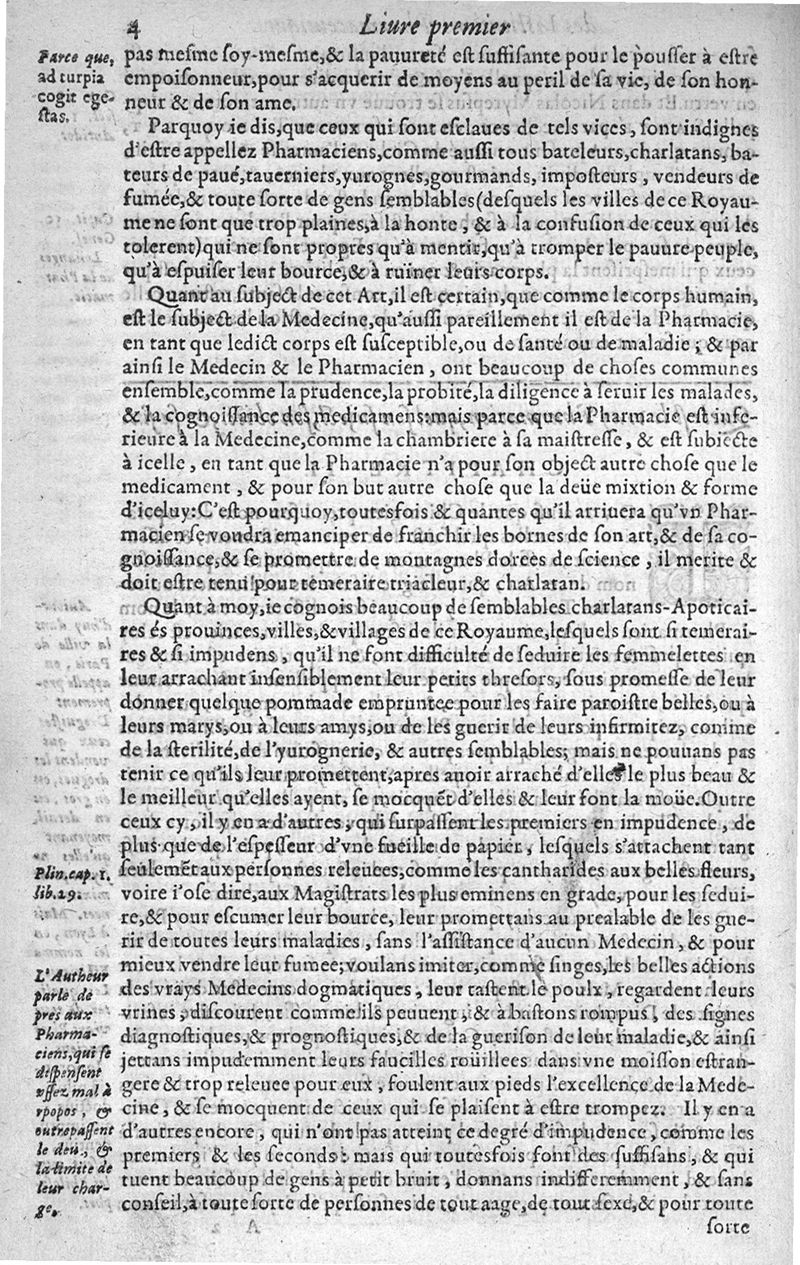 4 Liure premier
Parce que,
ad turpia
cogit ege-
stas.
pas mesme soy-mesme,& la pauureté est suffisante pour le pousser à estre
empoisonneur,pour s'acquerir de moyens au peril de sa vie, de son hon-
neur & de son ame.
Parquoy ie dis,que ceux qui sont esclaues de tels vices, sont indignes
d'estre appellez Pharmaciens,comme aussi tous bateleurs,charlatans, ba-
teurs de paué,tauerniers,yurognes,gourmands, imposteurs, vendeurs de
fumée,& toute sorte de gens semblables(desquels les villes de ce Royau-
me ne sont que trop plaines,à la honte, & à la confusion de ceux qui les
tolerent)qui ne sont propres qu'à mentir,qu'à tromper le pauure peuple,
qu'à espuiser leur bource,& à ruiner leurs corps.
Quant au subiect de cet Art,il est certain,que comme le corps humain,
est le subiect de la Medecine,qu'aussi pareillement il est de la Pharmacie,
en tant que ledict corps est susceptible,ou de santé ou de maladie; & par
ainsi le Medecin & le Pharmacien, ont beaucoup de choses communes
ensemble,comme la prudence,la probité,la diligence à seruir les malades,
& la cognoissance des medicamens:mais parce que la Pharmacie est infe-
rieure à la Medecine,comme la chambriere à sa maistresse, & est subiecte
à icelle, en tant que la Pharmacie n'a pour son object autre chose que le
medicament, & pour son but autre chose que la deüe mixtion & forme
d'iceluy:C'est pourquoy,toutesfois & quantes qu'il arriuera qu'vn Phar-
macien se voudra emanciper de franchir les bornes de son art,& de sa co-
gnoissance,& se promettre de montagnes dorees de science, il merite &
doit estre tenu pour temeraire triacleur,& charlatan.
Quant à moy,ie cognois beaucoup de semblables charlatans-Apoticai-
res és prouinces,villes,& villages de ce Royaume,lesquels sont si temerai-
res & si impudens, qu'il ne font difficulté de seduire les femmelettes en
leur arrachant insensiblement leur petits thresors, sous promesse de leur
donner quelque pommade empruntee pour les faire paroistre belles,ou à
leurs marys,ou à leurs amys,ou de les guerir de leurs infirmitez, comme
de la sterilité,de l'yurognerie, & autres semblables; mais ne pouuans pas
tenir ce qu'ils leur promettent,apres auoir arraché d'elles le plus beau &
le meilleur qu'elles ayent, se mocquēt d'elles & leur font la moüe.Outre
ceux cy, il y en a d'autres, qui surpassent les premiers en impudence, de
plus que de l'espesseur d'vne fueille de papier, lesquels s'attachent tant
Plin.cap.1.
lib.29.
seulemēt aux personnes releuees,comme les cantharides aux belles fleurs,
voire i'ose dire,aux Magistrats les plus eminens en grade, pour les sedui-
re,& pour escumer leur bource, leur promettans au prealable de les gue-
rir de toutes leurs maladies, sans l'assistance d'aucun Medecin, & pour
mieux vendre leur fumee;voulans imiter,comme singes,les belles actions
L'Autheur
parle de
pres aux
Pharma-
ciens,qui se
dispensent
assez mal à
propos, &
outrepassent
le deu, &
la limite de
leur char-
ge.
des vrays Medecins dogmatiques, leur tastent le poulx, regardent leurs
vrines, discourent comme ils peuuent, & à bastons rompus, des signes
diagnostiques,& prognostiques,& de la guerison de leur maladie,& ainsi
jettans impudemment leurs faucilles roüillees dans vne moisson estran-
gere & trop releuee pour eux, foulent aux pieds l'excellence de la Mede-
cine, & se mocquent de ceux qui se plaisent à estre trompez. Il y en a
d'autres encore, qui n'ont pas atteint ce degré d'impudence, comme les
premiers & les seconds: mais qui toutesfois font des suffisans, & qui
tuent beaucoup de gens à petit bruit, donnans indifferemment, & sans
conseil,à toute sorte de personnes de tout aage,de tout sexe,& pour toute
sorte